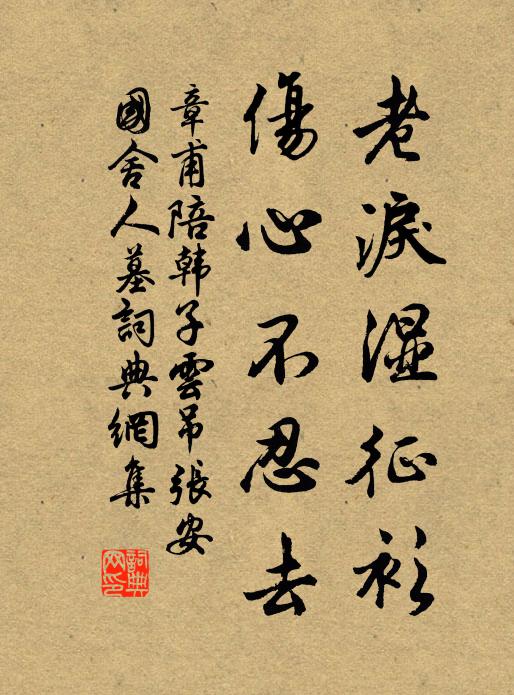 老淚濕征衫
傷心不忍去
章甫陪韩子雲吊張安
國舍人墓詞典網集
詞典
网印